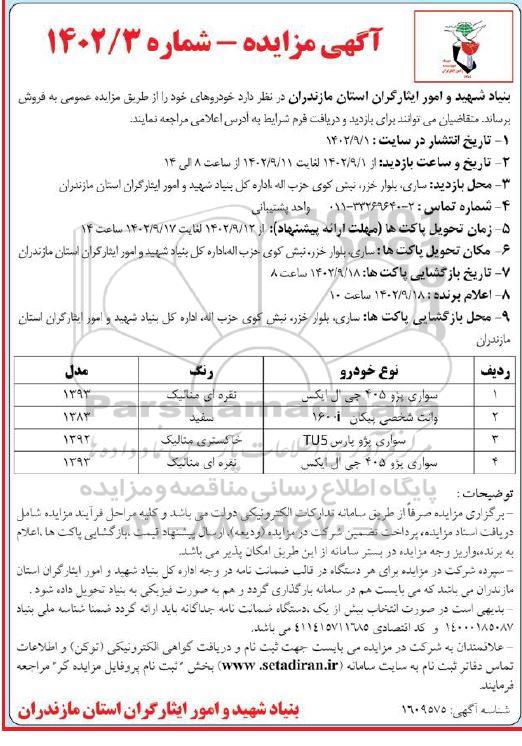 آگهی مزایده – شماره ۱۴۰۲/۳
بنیاد شهید و امور ایثارگران استان مازندران در نظر دارد خودروهای خود را از طریق مزایده عمومی به فروش
برساند. متقاضیان می توانند برای بازدید و دریافت فرم شرایط به آدرس اعلامی مراجعه نمایند.
۱- تاریخ انتشار در سایت : ۱۴۰۲/۹/۱
۲- تاریخ و ساعت بازدید: از ۱۴۰۲/۹/۱ لغایت ۱۴۰۲/۹/۱۱ از ساعت ۸ الی ۱۴
۳- محل بازدید: ساری، بلوار خزر، نبش کوی حزب اله ،اداره کل بنیاد شهید و امور ایثارگران استان مازندران
۴- شماره تماس : ۲-۳۳۲۶۹۶۴۰-۰۱۱ واحد پشتیبانی
۵- زمان تحویل پاکت ها (مهلت ارائه پیشنهاد): از ۱۴۰۲/۹/۱۲ لغایت ۱۴۰۲/۹/۱۷ ساعت ۱۴
۶- مکان تحویل پاکت ها : ساری، بلوار خزر، نبش کوی حزب اله،اداره کل بنیاد شهید و امور ایثارگران استان مازندران
۷- تاریخ بازگشایی پاکت ها: ۱۴۰۲/۹/۱۸ ساعت ۸
۸- اعلام برنده : ۱۴۰۲/۹/۱۸ ساعت ۱۰
۹- محل بازگشایی پاکت ها: ساری، بلوار خزر، نبش کوی حزب اله، اداره کل بنیاد شهید و امور ایثارگران استان
مازندران
ردیف نوع خودرو رنگ مدل
۱ سواری پژو ۴۰۵ جی ال ایکس نقره ای متالیک ۱۳۹۳
۲ وانت شخصی پیکان ۱۶۰۰i سفید ۱۳۸۳
۳ سواری پژو پارس TU5 خاکستری متالیک ۱۳۹۲
۴ سواری پژو ۴۰۵ جی ال ایکس نقره ای متالیک ۱۳۹۳
توضیحات :
- برگزاری مزایده صرفاً از طریق سامانه تدارکات الکترونیکی دولت می باشد و کلیه مراحل فرآیند مزایده شامل
دریافت اسناد مزایده، پرداخت تضمین شرکت در مزایده (ودیعه)، ارسال پیشنهاد قیمت ،بازگشایی پاکت ها ،اعلام
به برنده،واریز وجه مزایده در بستر سامانه از این طریق امکان پذیر می باشد.
- سپرده شرکت در مزایده برای هر دستگاه در قالب ضمانت نامه در وجه اداره کل بنیاد شهید و امور ایثارگران استان
مازندران می باشد که می بایست هم در سامانه بارگذاری گردد و هم به صورت فیزیکی به بنیاد تحویل داده شود .
- بدیهی است در صورت انتخاب بیش از یک ،دستگاه ضمانت نامه جداگانه باید ارائه گردد ضمنا شناسه ملی بنیاد
۱۴۰۰۰۱۸۵۰۸۷ و کد اقتصادی ۴۱۱۴۱۵۷۱۱۶۸۵ می باشد.
- علاقمندان به شرکت در مزایده می بایست جهت ثبت نام و دریافت گواهی الکترونیکی (توکن) و اطلاعات
تماس دفاتر ثبت نام به سایت سامانه (www .setadiran.ir) بخش "ثبت نام پروفایل مزایده گر" مراجعه
فرمایند.
شناسه آگهی: ۱۶۰۹۵۷۵
بنیاد شهید و امور ایثارگران استان مازندران